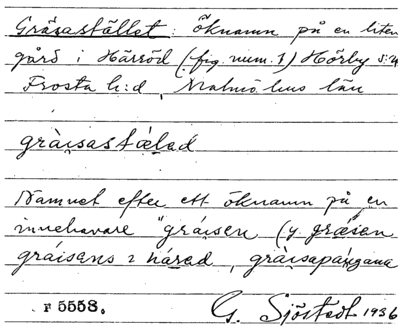 Gräsastället: Öknamn på en liten
gård i Härröd (fig. num. 1) Hörby s:n
Frosta h:d, Malmöhus län
gràisastælad
Namnet efter ett öknamn på en
innehavare "gráisen (y. græsen
gráisans 2 hárad, gràisapáŋgana
F 5558.
G. Sjöstedt 1936